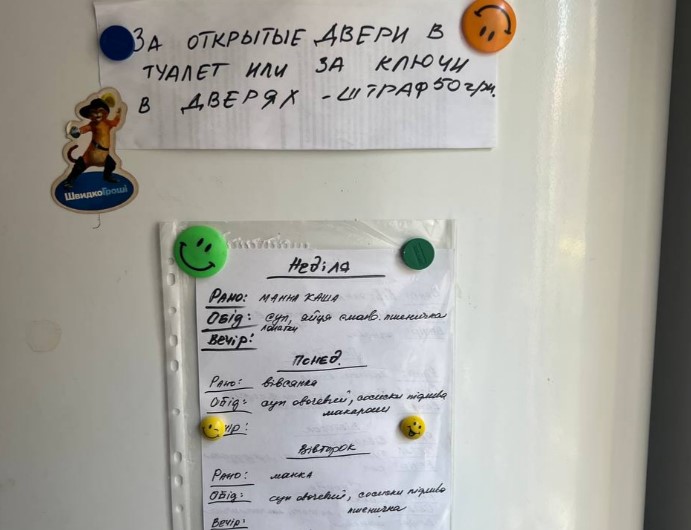 За открытые двери в
туалет или за ключи
в дверях - штраф 50 грн.
ШвидкоГроші
Неділя
Рано: манна каша
Обід: суп, яйця смаж. пшенична
Вечір:
Понед.
Рано: вівсянка
Обід: суп овочевий, сосиски підлива
макарони
Вівторок
Рано: манка
Обід: суп овочевий, сосиски підлива
пшенична
Вечір: